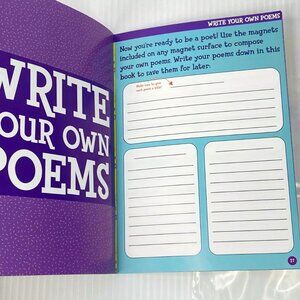 WRITE
YOUR OWN
POEMS
WRITE YOUR OWN POEMS
Now you're ready to be a poet! Use the magnets
included on any magnet surface to compose
your own poems. Write your poems down in this
book to save them for later.
Make sure to give
each poem a title!
37